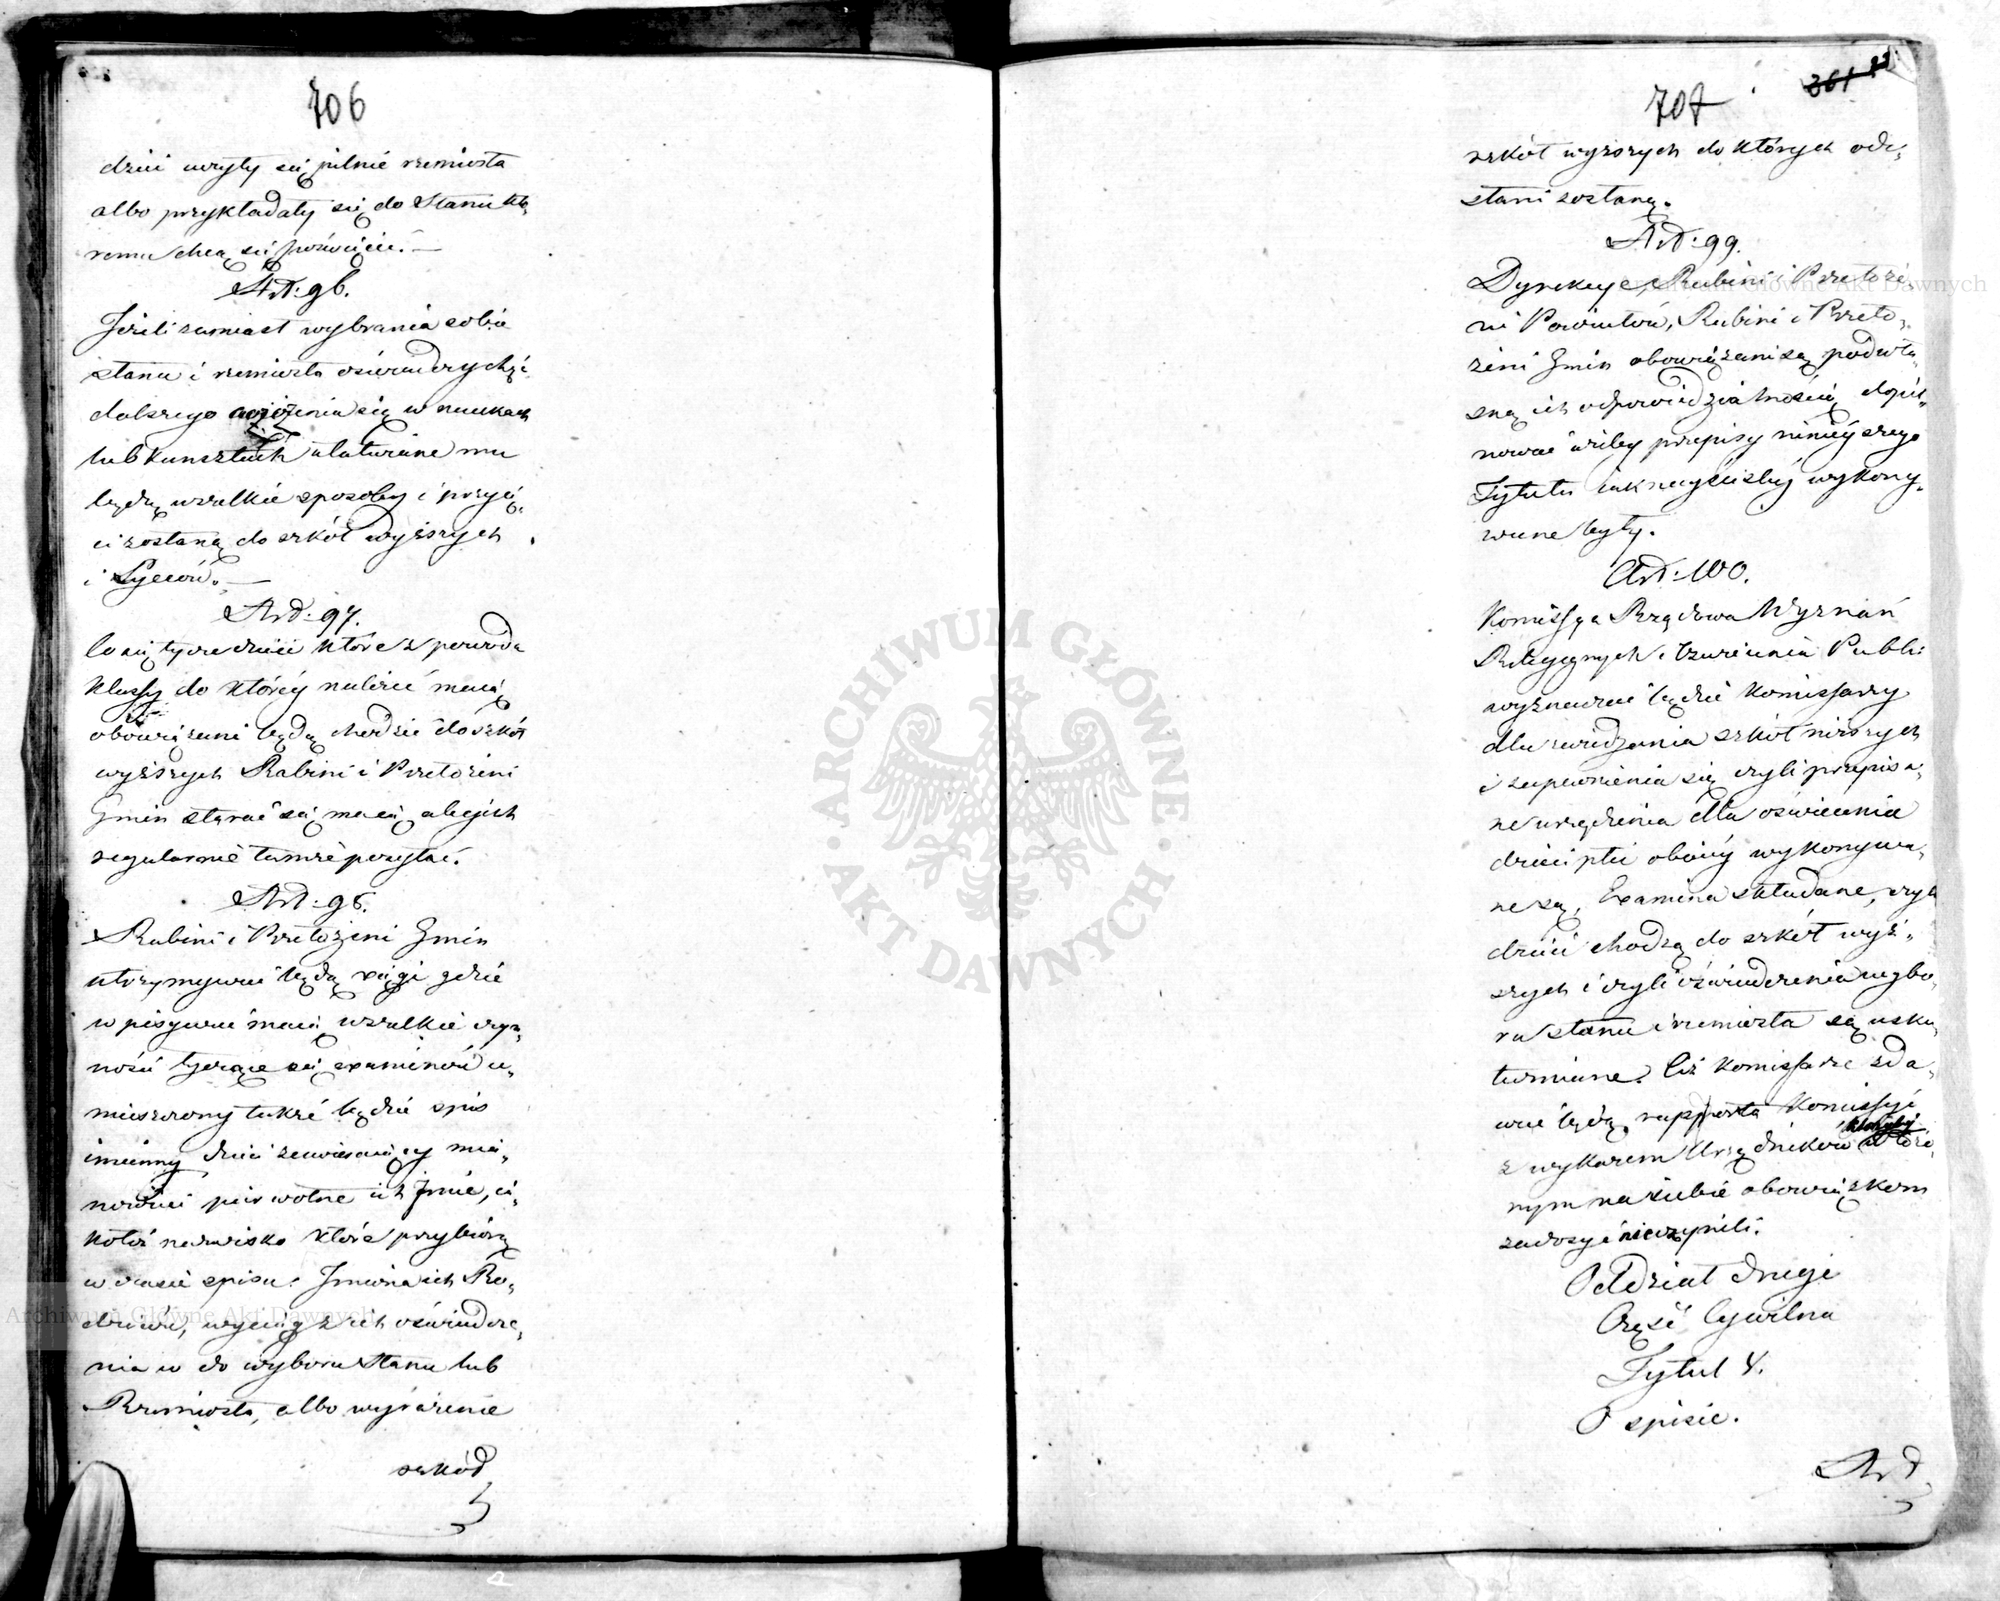 706
dzieci uczyły się pilnie rzemiosła
albo przykładały się do Stanu któ,
remu chcą się poświęcić. —
Art: 96.
Jeżeli zamiast wybrania sobie
stanu i rzemiosła oświadczy chęć
dalszego ćwiczenia się w naukach
lub kunsztach ułatwiane mu
będą wszelkie sposoby i przyię,
ci zostaną do szkół wyższych
i Lyceów. —
Art: 97.
Co się tycze dzieci które z powodu
klassy do któréy należeć maią
obowiązani będą chodzić do szkół
wyższych Rabini i Przełożeni
Gmin starać się maią, ażeby ich
regularnie tamże posyłać.
Art: 98.
Rabini i Przełożeni Gmin
utrzymywać będą xięgi gdzie
wpisywać maią wszelkie czyn,
ności tyczące się examinów u,
mieszczony także będzie spis
imienny dzieci zawieraiący mia,
nowicie pierwotne ich Imie, ia,
kotéż nazwisko które przybiorą
w czasie spisu. Imiona ich Ro,
dziców, wyciąg z ich oświadcze,
nia w do wyboru Stanu lub
Rzemiosła, albo wyrażenie
szkół
707
361
szkół wyższych do których ode,
słani zostaną.
Art: 99.
Dyrekcye, Rabini i Przełoże,
ni Powiatów, Rabini i Przeło,
żeni Gmin obowiązani są pod wła,
sną ich odpowiedzialnością dopil,
nować ażeby przepisy ninieyszego
Tytułu iak nayściśléy wykony,
wane były.
Art: 100.
Kommissya Rządowa Wyznań
Religiynych i Oświecenia Publi:
wyznaczać będzie Komissarzy
dla zwiedzania szkół niższych
i zapewnienia się czyli przepisa,
ne urządzenia dla oświecenia
dzieci płci obóiéy wykonywa,
ne są, Examina składane, czyli
dzieci chodzą do szkół wyż,
szych i czyli oświadczenia wybo,
ru stanu i rzemiosła są usku,
teczniane. Ciż Komissarze zda,
wać będą rapporta Komissyi
z wykazem Urzędników którzyby włożo,
nym na siebie obowiązkom
zadosyć nieczynili.
Oddział drugi
Część Cywilna
Tytuł 4.
O spisie.
Art
ARCHIWUM GŁÓWNE AKT DAWNYCH
Archiwum Główne Akt Dawnych
Archiwum Główne Akt Dawnych